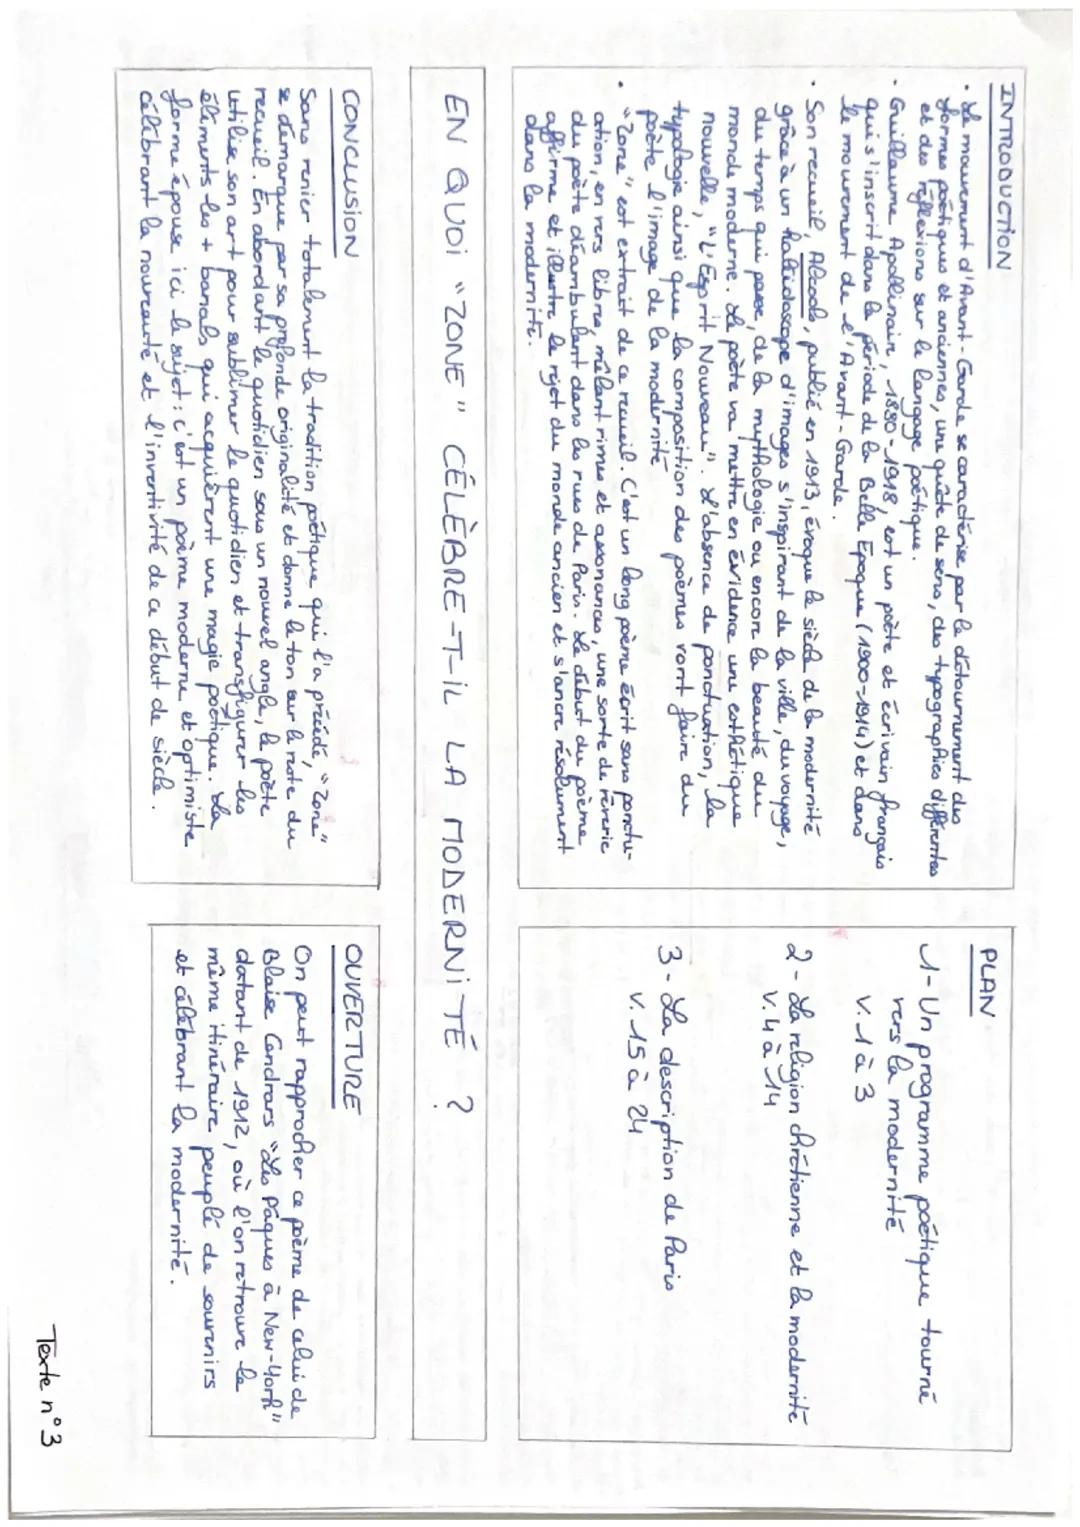 INTRODUCTION
• Le mouvement d'Avant-Garde se caractérise par le détournement des
formes poétiques et anciennes, une quête de sens, des typographies différentes
et des réflexions sur le langage poétique.
• Guillaume Apollinaire, 1880-1918, est un poète et écrivain français
qui s'inscrit dans la période de la Belle Epoque (1900-1914) et dans
le mouvement de l'Avant-Garde.
• Son recueil, Alcools, publié en 1913, évoque le siècle de la modernité
grâce à un kaléidoscope d'images s'inspirant de la ville, du voyage,
du temps qui passe, de la mythologie ou encore la beauté du
monde moderne. Le poète va mettre en évidence une esthétique
nouvelle, "L'Esprit Nouveau". L'absence de ponctuation, la
typologie ainsi que la composition des poèmes vont faire du
poète l'image de la modernité
• "Zone" est extrait de ce recueil. C'est un long poème écrit sans ponctu-
ation, en vers libres, mêlant rimes et assonances, une sorte de rêverie
du poète déambulant dans les rues de Paris. Le début du poème
affirme et illustre le rejet du monde ancien et s'ancre résolument
dans la modernité.
PLAN
1- Un programme poétique tourné
vers la modernité
v. 1 à 3
2- La religion chrétienne et la modernité
v. 4 à 14
3- La description de Paris
v. 15 à 24
EN QUOI "ZONE" CÉLÈBRE-T-IL LA MODERNITÉ ?
CONCLUSION
Sans renier totalement la tradition poétique qui l'a précédé, "Zone"
se démarque par sa profonde originalité et donne le ton sur le reste du
recueil. En abordant le quotidien sous un nouvel angle, le poète
utilise son art pour sublimer le quotidien et transfigurer les
éléments les + banals qui acquièrent une magie poétique. La
forme épouse ici le sujet : c'est un poème moderne et optimiste
célébrant la nouveauté et l'inventivité de ce début de siècle.
OUVERTURE
On peut rapprocher ce poème de celui de
Blaise Cendrars "Les Pâques à New-York"
datant de 1912, où l'on retrouve le
même itinéraire peuplé de souvenirs
et célébrant la modernité.
Texte n°3